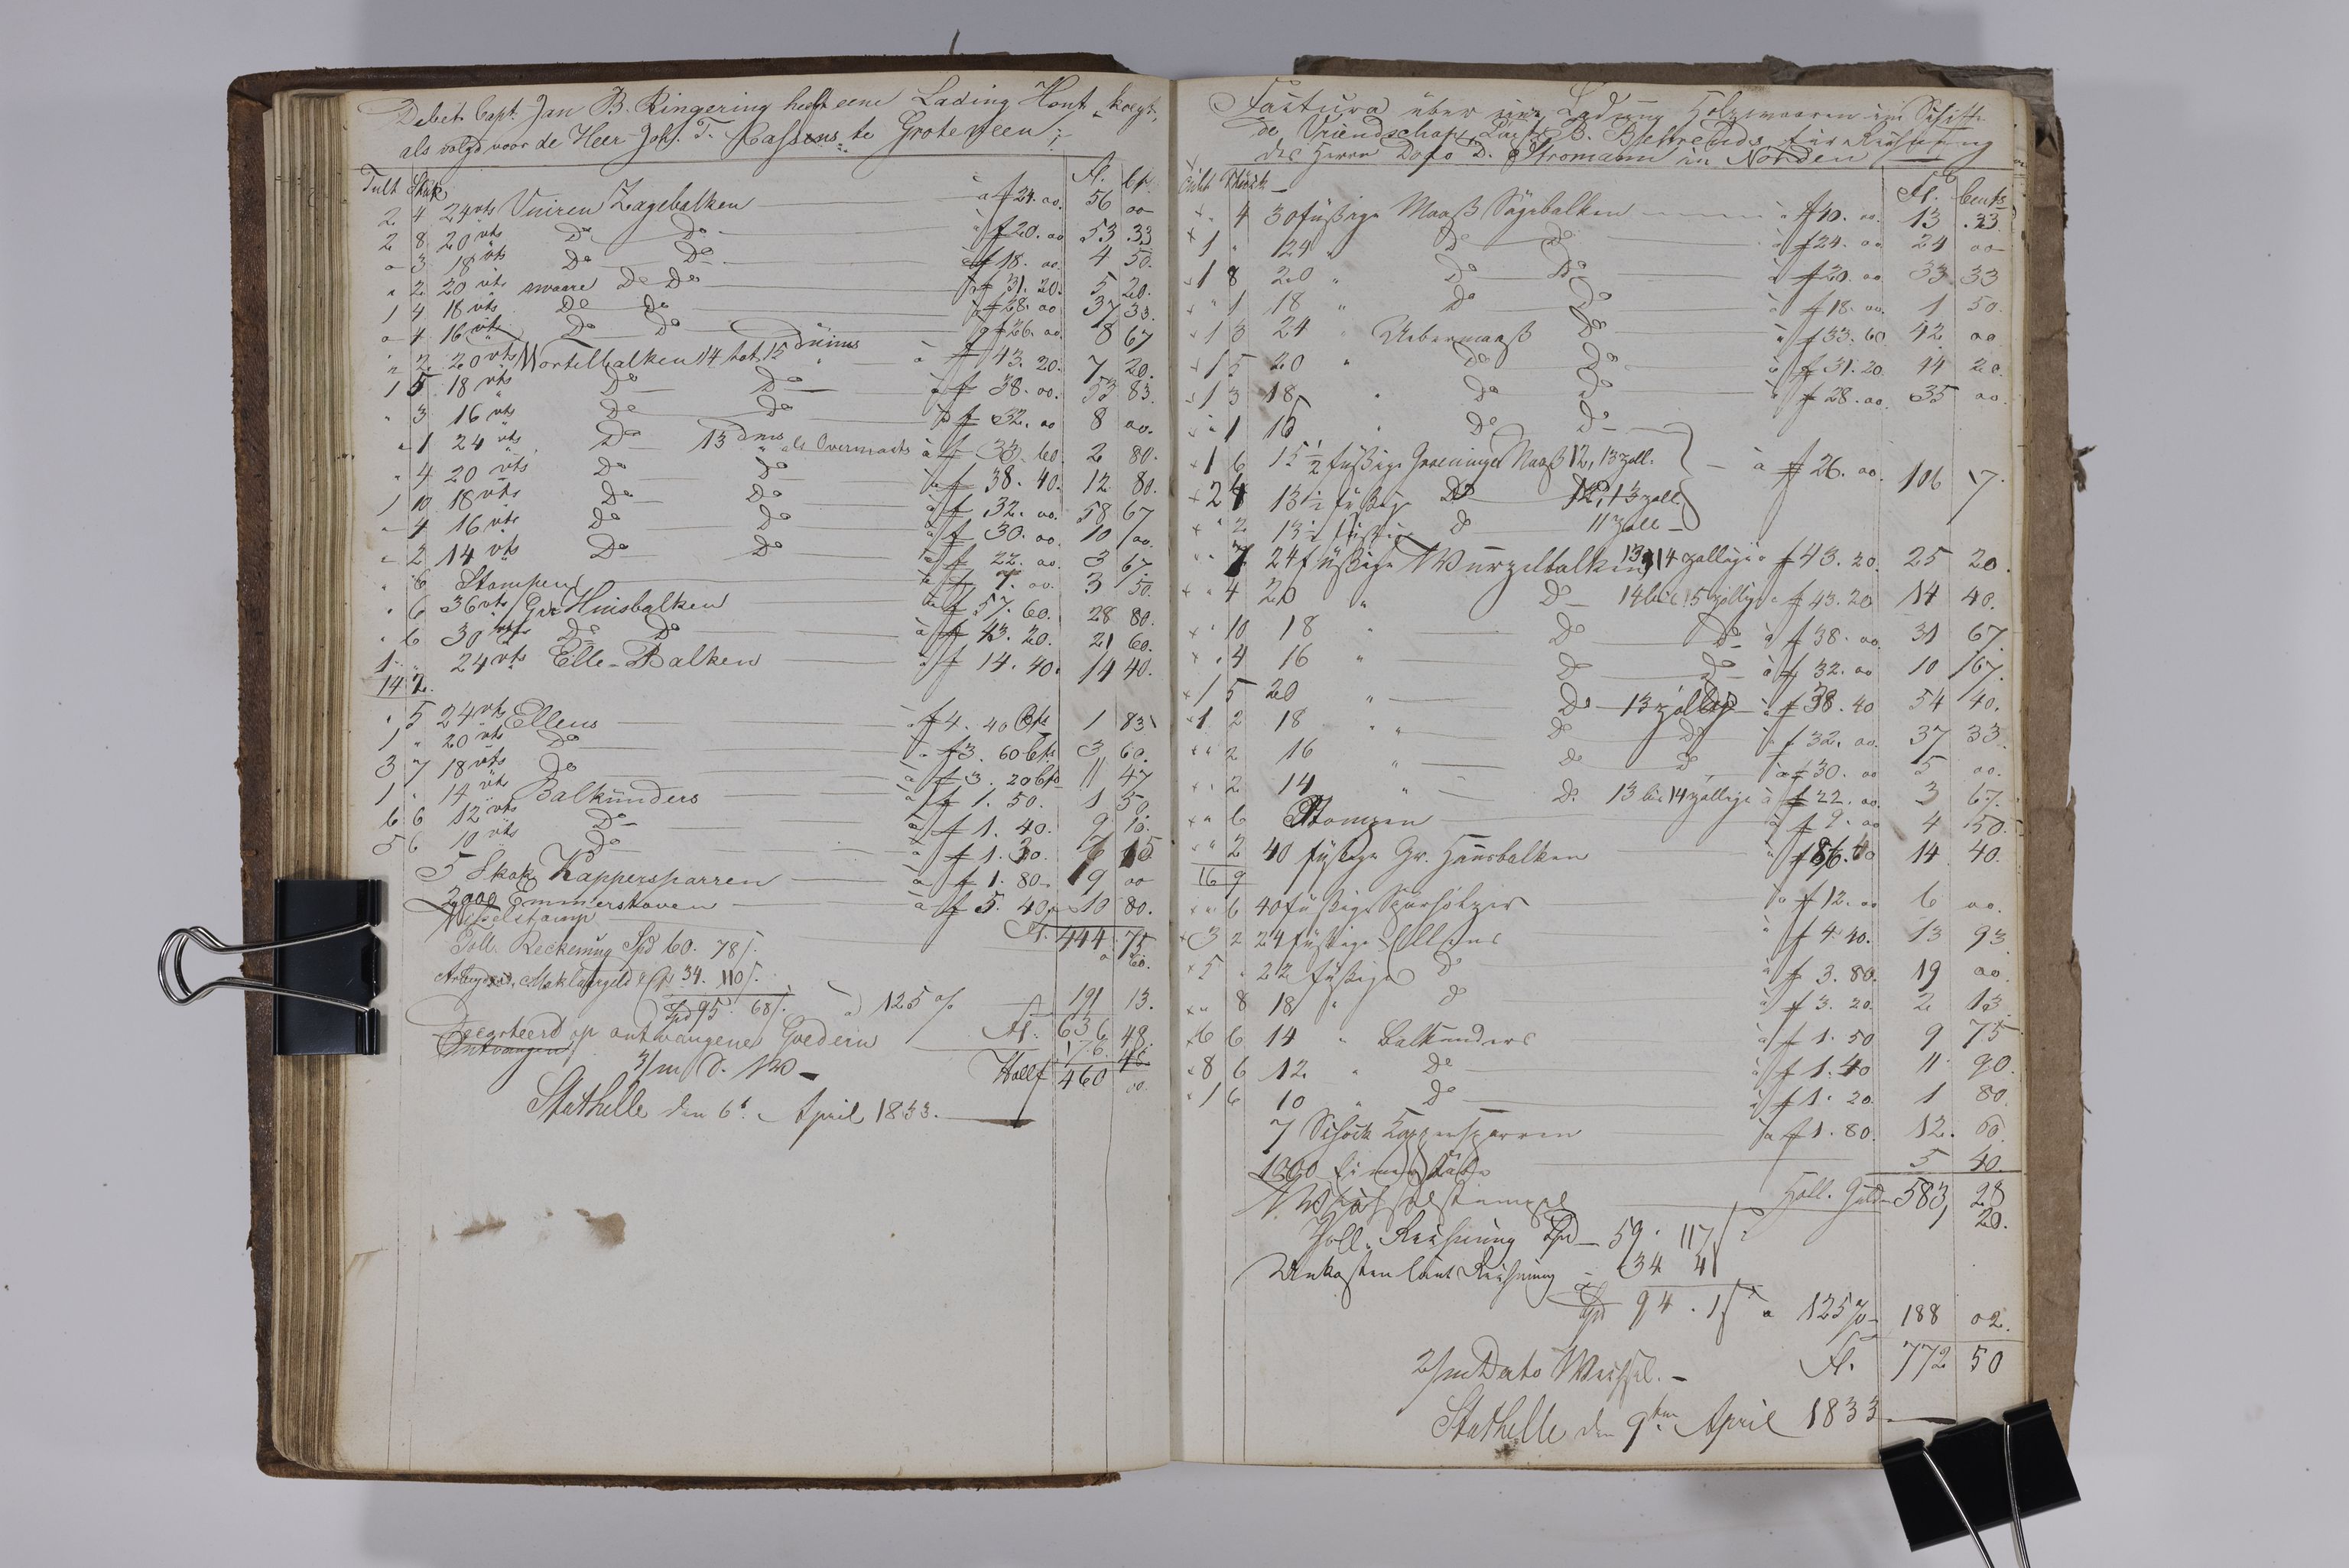 Debet Capt. Jan B. Ringering heeft eene Lading Hout
als volgd voor de Heer Joh. T. Cassens te Groteveen
Tult Stuk Fl. Ct.
2 4 24 vts Vuiren Zagebalken à f 24. 00. 56 00
2 8 20 vts Do Do à f 20. 00 53 33
" 3 18 vts Do Do à f 18. 00. 4 50.
" 2 20 vts swaare Do Do à f 31. 20. 5 20.
1 4 18 vts Do Do à f 28. 00 37 33.
" 4 16 vts Do Do à f 26. 00. 8 67
" 2 20 vts Wortelbalken 14 tot 15 duims à f 43. 20. 7 20.
1 5 18 vts Do Do à f 38. 00. 53 83.
" 3 16 vts Do Do à f 32. 00 8 00.
" 1 24 vts Do 13 dms als Overmaats à f 33. 60 2 80.
" 4 20 vts Do Do à f 38. 40. 12 80.
1 10 18 vts Do Do à f 32. 00. 58 67
" 4 16 vts Do Do à f 30. 00. 10 00.
" 2 14 vts Do Do à f 22. 00. 3 67.
" 6 Stampen à f 7. 00. 3 50.
" 6 36 vts Gr. Huisbalken à f 57. 60. 28 80.
" 6 30 vts Do Do à f 43. 20. 21 60.
1 " 24 vts Elle-Balken à f 14. 40. 14 40.
14 2.
" 5 24 vts Ellens à f 4. 40 Cts 1 83
1 " 20 vts Do à f 3. 60 Cts 3 60.
3 7 18 vts Do à f 3. 20 Cts 11 47
1 " 14 vts Balkunders à f 1. 50. 1 50.
6 6 12 vts Do à f 1. 40. 9 10.
5 6 10 vts Do à f 1. 30. 7 15
5 Skok Kappersparren à f 1. 80. 9 00
2000 Emmerstaven à f 5. 40 10 80.
Fl. 444 75
Wisselstamp " 60.
Toll Reckening Spd 60. 78 /.
Maklargeld 34. 110 /.
Spd 95. 68 /. à 125 % 191 13.
Fl. 636 48.
op ontvangene Goederen 176. 48
3/m d. 460 00.
Stathelle den 6t. April 1833.
Factura über eine Ladung Holzwaaren im Schiffe
de Vriendschap, Capt. B. Behrends für Rechnung
des Herrn Dofo D. Stromann in Norden
Stück Fl. Cents
" 4 30 füßige Maaß Sägebalken à f 40. 00. 13 .33
1 " 24 " Do Do à f 24. 00 24 00
1 8 20 " Do Do à f 20. 00 33 33
" 1 18 " Do Do à f 18. 00. 1 50.
1 3 24 " Uebermaaß Do à f 33. 60 42 00
1 5 20 " Do Do à f 31. 20. 44 20.
1 3 18 " Do Do à f 28. 00. 35 00.
" 1 16 " Do Do
1 6 15½ füßige Groeninger Maaß 12, 13 zoll.
2 4 13½ füßig Do 12, 13 zoll à f 26. 00. 106 17.
" 2 13½ füßig Do 11 zoll
" 7 24 füßige Wurzelbalken 13, 14 zollige à f 43. 20. 25 20.
" 4 20 " Do 14 bis 15 zollige à f 43. 20 14 40.
" 10 18 " Do Do à f 38. 00. 31 67.
" 4 16 " Do Do à f 32. 00 10 67.
1 5 20 " Do 13 zollig à f 38. 40 54 40.
1 2 18 " " Do Do à f 32. 00. 37 33.
" 2 16 " Do Do à f 30. 00 5 00.
" 2 14 " Do 13 bis 14 zollige à f 22. 00. 3 67.
" 6 Stampen à f 9. 00 4 50.
" 2 40 füßige Gr. Hausbalken à f 86. 40 14 40.
16 9
" 6 40 füßige à f 12. 00 6 00.
3 2 24 füßige Ellens à f 4. 40. 13 93
5 " 22 füßige Do à f 3. 80. 19 00
" 8 18 " Do à f 3. 20. 2 13
6 6 14 " Balkunders à f 1. 50 9 75
8 6 12 " Do à f 1. 40 11 90
1 6 10 " Do à f 1. 20. 1 80.
7 Schock Kappersparren à f 1. 80. 12. 60.
1000 Eimerstäbe 5 40.
Holl. Guld. 583, 28
Wechselstempel 20.
Zoll. Rechnung Spd 59. 117 /.
Unkosten laut Rechnung 34 4
Spd 94. 1 /. à 125 % 188 02.
2/m Dato Wechsel. Fl. 772 50
Stathelle den 9ten April 1833